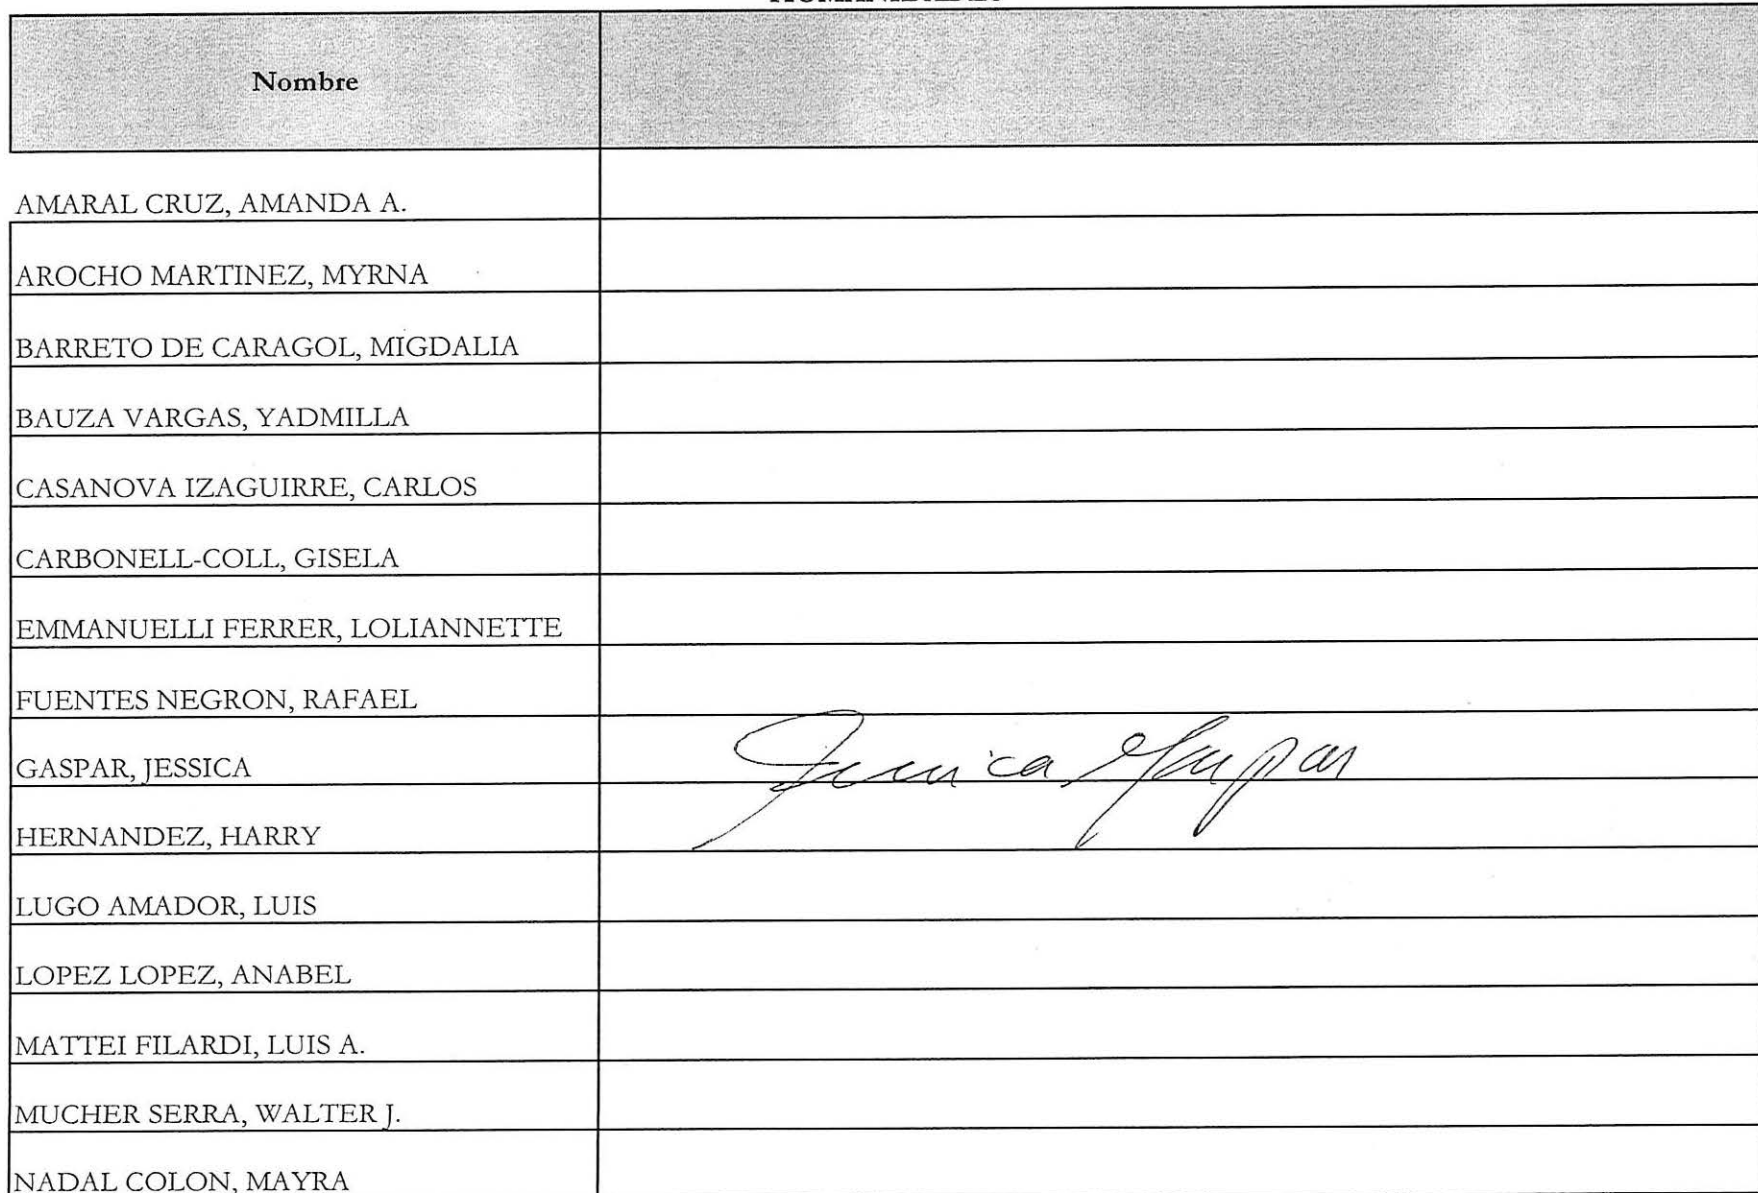 Nombre
AMARAL CRUZ, AMANDA A.
AROCHO MARTINEZ, MYRNA
BARRETO DE CARAGOL, MIGDALIA
BAUZA VARGAS, YADMILLA
CASANOVA IZAGUIRRE, CARLOS
CARBONELL-COLL, GISELA
EMMANUELLI FERRER, LOLIANNETTE
FUENTES NEGRON, RAFAEL
GASPAR, JESSICA Jessica Gaspar
HERNANDEZ, HARRY
LUGO AMADOR, LUIS
LOPEZ LOPEZ, ANABEL
MATTEI FILARDI, LUIS A.
MUCHER SERRA, WALTER J.
NADAL COLON, MAYRA